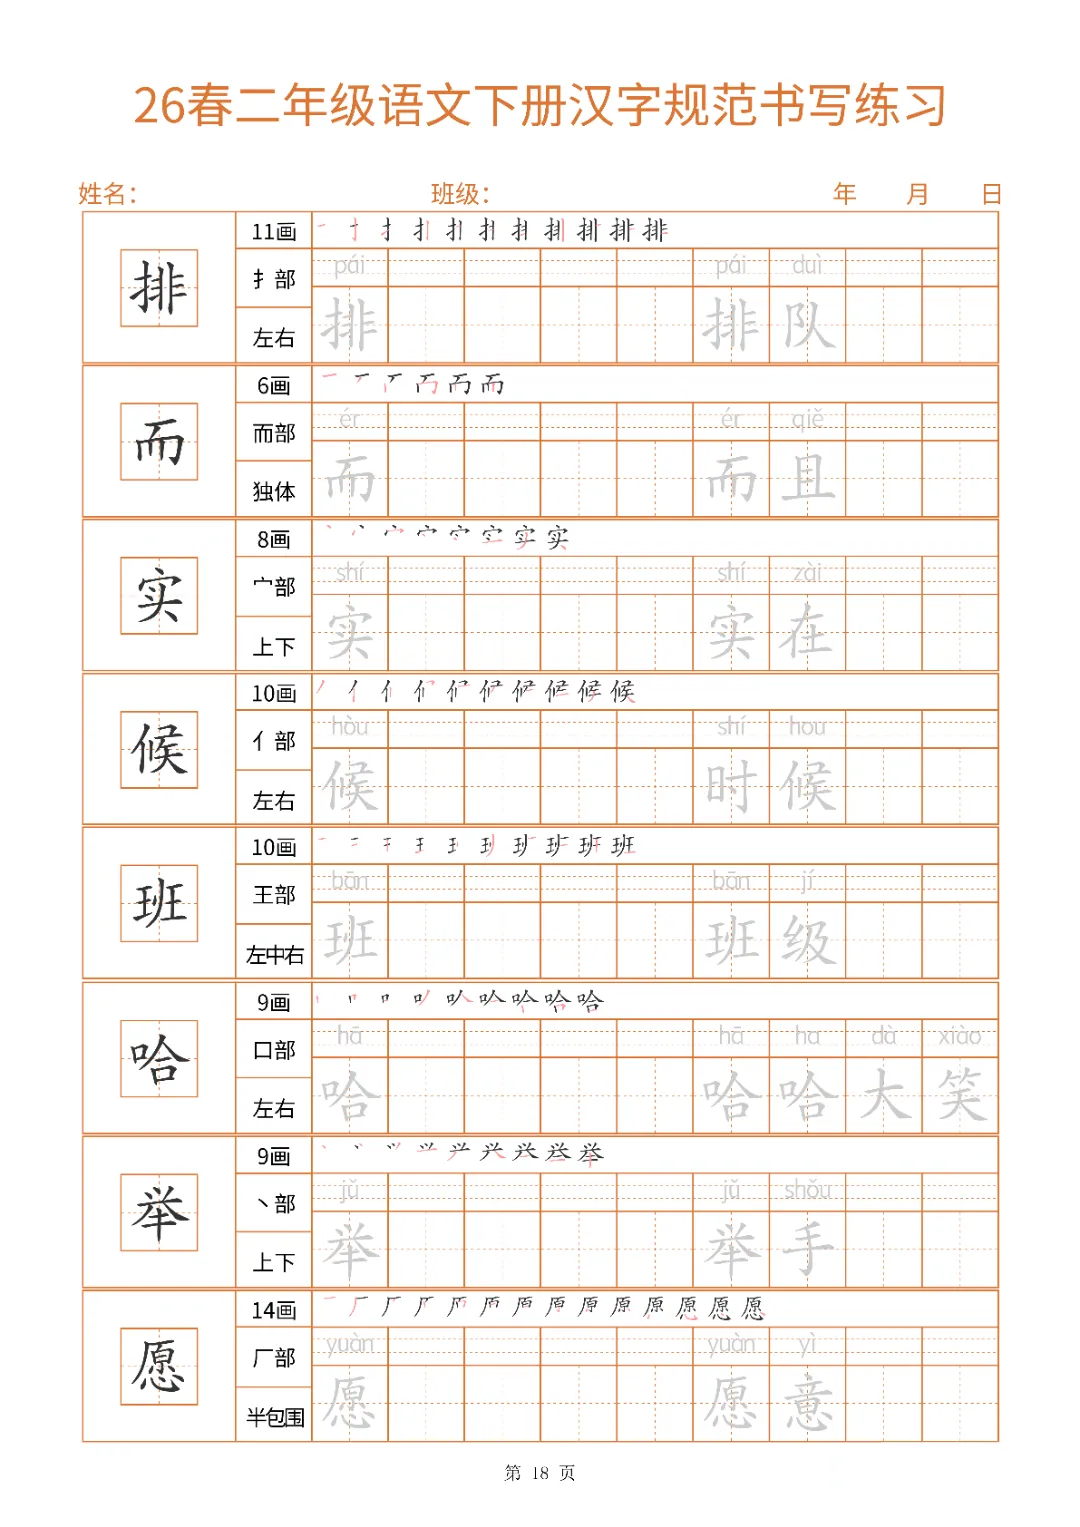 26春二年级语文下册汉字规范书写练习
姓名： 班级： 年 月 日
排 11画
扌部 pái pái duì
左右 排 排 队
而 6画
而部 ér ér qiě
独体 而 而 且
实 8画
宀部 shí shí zài
上下 实 实 在
候 10画
亻部 hòu shí hou
左右 候 时 候
班 10画
王部 bān bān jí
左中右 班 班 级
哈 9画
口部 hā hā ha dà xiào
左右 哈 哈 哈 大 笑
举 9画
丶部 jǔ jǔ shǒu
上下 举 举 手
愿 14画
厂部 yuàn yuàn yì
半包围 愿 愿 意
第 18 页